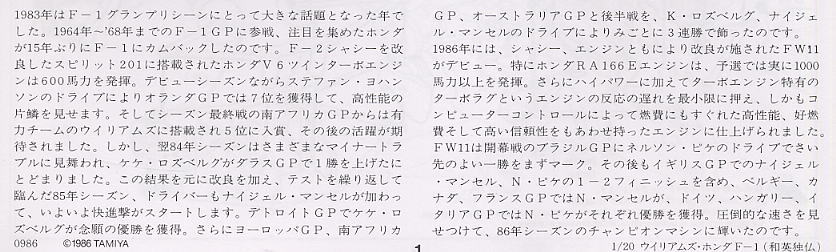 1983年はF－1グランプリシーンにとって大きな話題となった年で
した。1964年～'68年までのF－1GPに参戦、注目を集めたホンダ
が15年ぶりにF－1にカムバックしたのです。F－2シャシーを改
良したスピリット201に搭載されたホンダV6ツインターボエンジ
ンは600馬力を発揮。デビューシーズンながらステファン・ヨハン
ソンのドライブによりオランダGPでは7位を獲得して、高性能の
片鱗を見せます。そしてシーズン最終戦の南アフリカGPからは有
力チームのウイリアムズに搭載され5位に入賞、その後の活躍が期
待されました。しかし、翌84年シーズンはさまざまなマイナートラ
ブルに見舞われ、ケケ・ロズベルグがダラスGPで1勝を上げたに
とどまりました。この結果を元に改良を加え、テストを繰り返して
臨んだ85年シーズン、ドライバーもナイジェル・マンセルが加わっ
て、いよいよ快進撃がスタートします。デトロイトGPでケケ・ロ
ズベルグが念願の優勝を獲得。さらにヨーロッパGP、南アフリカ
0986 ©1986 TAMIYA
GP、オーストラリアGPと後半戦を、K・ロズベルグ、ナイジェ
ル・マンセルのドライブによりみごとに3連勝で飾ったのです。
1986年には、シャシー、エンジンともにより改良が施されたFW11
がデビュー。特にホンダRA166Eエンジンは、予選では実に1000
馬力以上を発揮。さらにハイパワーに加えてターボエンジン特有の
ターボラグというエンジンの反応の遅れを最小限に押え、しかもコ
ンピューターコントロールによって燃費にもすぐれた高性能、好燃
費そして高い信頼性をもあわせ持ったエンジンに仕上げられました。
FW11は開幕戦のブラジルGPにネルソン・ピケのドライブでさい
先のよい一勝をまずマーク。その後もイギリスGPでのナイジェル
・マンセル、N・ピケの1－2フィニッシュを含め、ベルギー、カ
ナダ、フランスGPではN・マンセルが、ドイツ、ハンガリー、イ
タリアGPではN・ピケがそれぞれ優勝を獲得。圧倒的な速さを見
せつけて、86年シーズンのチャンピオンマシンに輝いたのです。
1
1/20 ウイリアムズ・ホンダF－1（和英独仏）